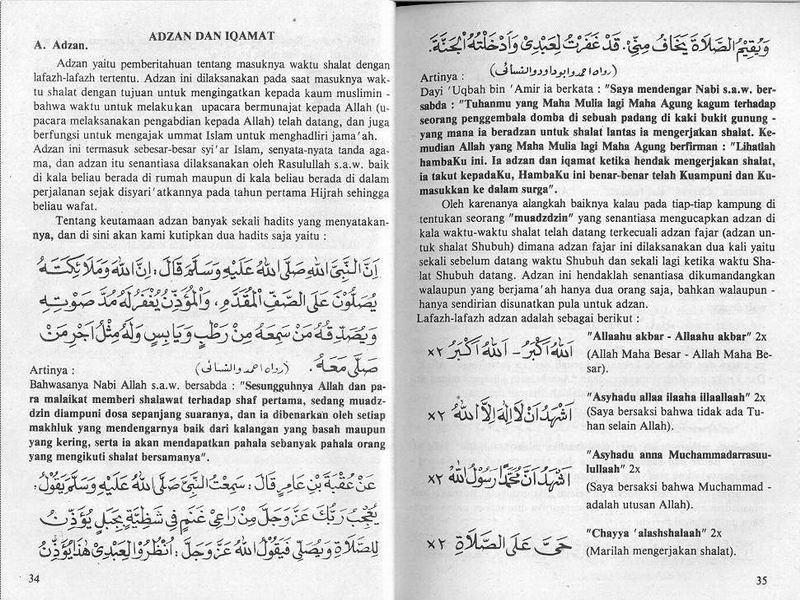 ADZAN DAN IQAMAT
A. Adzan.
Adzan yaitu pemberitahuan tentang masuknya waktu shalat dengan
lafazh-lafazh tertentu. Adzan ini dilaksanakan pada saat masuknya wak-
tu shalat dengan tujuan untuk mengingatkan kepada kaum muslimin -
bahwa waktu untuk melakukan upacara bermunajat kepada Allah (u-
pacara melaksanakan pengabdian kepada Allah) telah datang, dan juga
berfungsi untuk mengajak ummat Islam untuk menghadliri jama'ah.
Adzan ini termasuk sebesar-besar syi'ar Islam, senyata-nyata tanda aga-
ma, dan adzan itu senantiasa dilaksanakan oleh Rasulullah s.a.w. baik
di kala beliau berada di rumah maupun di kala beliau berada di dalam
perjalanan sejak disyari'atkannya pada tahun pertama Hijrah sehingga
beliau wafat.
Tentang keutamaan adzan banyak sekali hadits yang menyatakan-
nya, dan di sini akan kami kutipkan dua hadits saja yaitu :
اِنَّ النَّبِيَّ اللهِ صَلَّى اللهُ عَلَيْهِ وَسَلَّمَ قَالَ : اِنَّ اللهَ وَمَلَائِكَتَهُ
يُصَلُّوْنَ عَلَى الصَّفِّ الْمُقَدَّمِ، وَالْمُؤَذِّنُ يُغْفَرُ لَهُ مَدَّ صَوْتِهِ
وَيُصَدِّقُهُ مَنْ سَمِعَهُ مِنْ رَطْبٍ وَيَابِسٍ وَلَهُ مِثْلُ اَجْرِ مَنْ
صَلَّى مَعَهُ . (رواه احمد والنسائى)
Artinya :
Bahwasanya Nabi Allah s.a.w. bersabda : "Sesungguhnya Allah dan pa-
ra malaikat memberi shalawat terhadap shaf pertama, sedang muadz-
dzin diampuni dosa sepanjang suaranya, dan ia dibenarkan oleh setiap
makhluk yang mendengarnya baik dari kalangan yang basah maupun
yang kering, serta ia akan mendapatkan pahala sebanyak pahala orang
yang mengikuti shalat bersamanya".
عَنْ عُقْبَةَ بْنِ عَامِرٍ قَالَ : سَمِعْتُ النَّبِيَّ صَلَّى اللهُ عَلَيْهِ وَسَلَّمَ يَقُوْلُ :
يَعْجَبُ رَبُّكَ عَزَّ وَجَلَّ مِنْ رَاعِى غَنَمٍ فِى شَظِيَّةٍ بِجَبَلٍ يُؤَذِّنُ
لِلصَّلَاةِ وَيُصَلِّى فَيَقُوْلُ اللهُ عَزَّ وَجَلَّ : اُنْظُرُوْا لِعَبْدِىْ هٰذَا يُؤَذِّنُ
34
وَيُقِيْمُ الصَّلَاةَ يَخَافُ مِنِّيْ . قَدْ غَفَرْتُ لِعَبْدِىْ وَاَدْخَلْتُهُ الْجَنَّةَ .
(رواه احمد وابوداود والنسائى)
Artinya :
Dayi 'Uqbah bin 'Amir ia berkata : "Saya mendengar Nabi s.a.w. ber-
sabda : "Tuhanmu yang Maha Mulia lagi Maha Agung kagum terhadap
seorang penggembala domba di sebuah padang di kaki bukit gunung -
yang mana ia beradzan untuk shalat lantas ia mengerjakan shalat. Ke-
mudian Allah yang Maha Mulia lagi Maha Agung berfirman : "Lihatlah
hambaKu ini. Ia adzan dan iqamat ketika hendak mengerjakan shalat,
ia takut kepadaKu, HambaKu ini benar-benar telah Kuampuni dan Ku-
masukkan ke dalam surga".
Oleh karenanya alangkah baiknya kalau pada tiap-tiap kampung di
tentukan seorang "muadzdzin" yang senantiasa mengucapkan adzan di
kala waktu-waktu shalat telah datang terkecuali adzan fajar (adzan un-
tuk shalat Shubuh) dimana adzan fajar ini dilaksanakan dua kali yaitu
sekali sebelum datang waktu Shubuh dan sekali lagi ketika waktu Sha-
lat Shubuh datang. Adzan ini hendaklah senantiasa dikumandangkan
walaupun yang berjama'ah hanya dua orang saja, bahkan walaupun -
hanya sendirian disunatkan pula untuk adzan.
Lafazh-lafazh adzan adalah sebagai berikut :
اَللهُ اَكْبَرُ – اَللهُ اَكْبَرُ ×٢
"Allaahu akbar - Allaahu akbar" 2x
(Allah Maha Besar - Allah Maha Be-
sar).
اَشْهَدُ اَنْ لَا اِلٰهَ اِلَّا اللهُ ×٢
"Asyhadu allaa ilaaha illaallaah" 2x
(Saya bersaksi bahwa tidak ada Tu-
han selain Allah).
اَشْهَدُ اَنَّ مُحَمَّدًا رَسُوْلُ اللهِ ×٢
"Asyhadu anna Muchammadarrasuu-
lullaah" 2x
(Saya bersaksi bahwa Muchammad -
adalah utusan Allah).
حَيَّ عَلَى الصَّلَاةِ ×٢
"Chayya 'alashshalaah" 2x
(Marilah mengerjakan shalat).
35